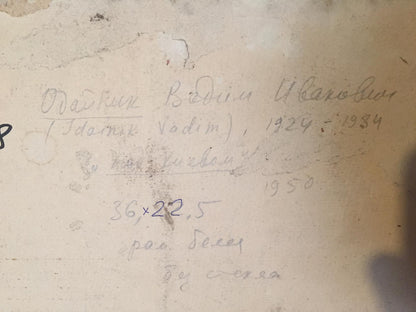 Одайник Вадим Иванович
(Odainik Vadim), 1924 - 1984
1950
36,×22,5
рам. белая
без стекла
8